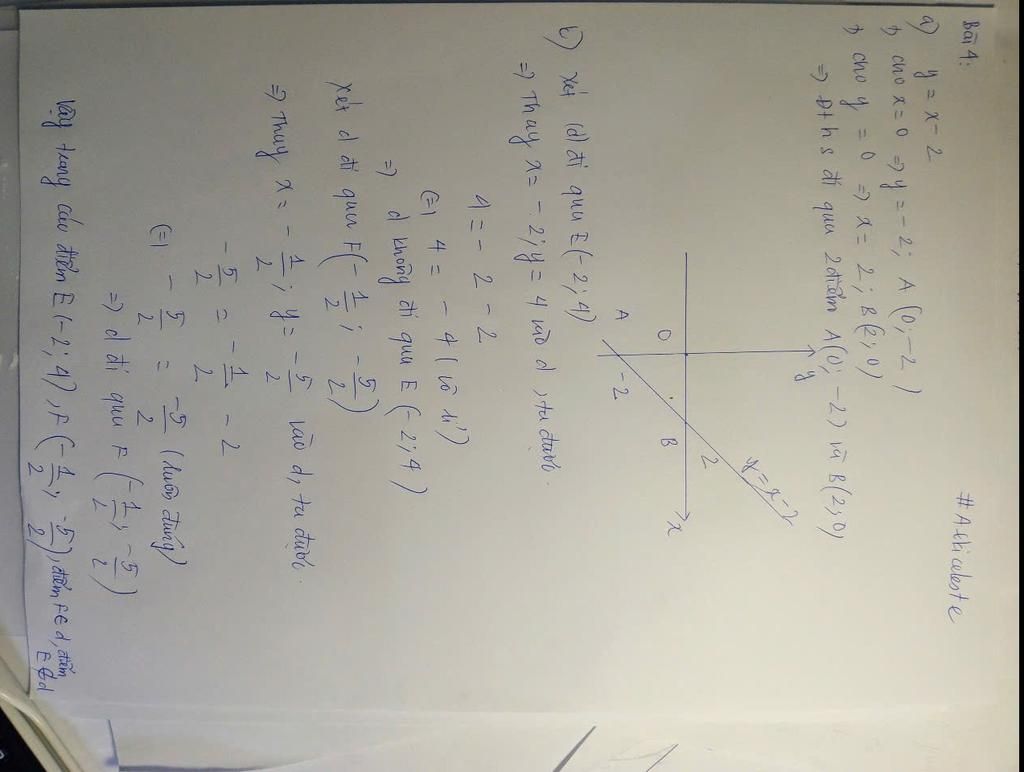 #Alticeleste
Bài 4:
a) y = x - 2
+, cho x = 0 => y = -2; A(0; -2)
+, cho y = 0 => x = 2; B(2; 0)
=> Đths đi qua 2 điểm A(0; -2) và B(2; 0)
y
y = x - 2
2
O
B
x
A
-2
b) Xét (d) đi qua E(-2; 4)
=> Thay x = -2; y = 4 vào d, ta được.
4 = -2 - 2
(=) 4 = -4 (vô lí)
=) d không đi qua E(-2; 4)
Xét d đi qua F(-1/2; -5/2)
=> Thay x = -1/2; y = -5/2 vào d, ta được.
-5/2 = -1/2 - 2
(=) -5/2 = -5/2 (luôn đúng)
=) d đi qua F(-1/2; -5/2)
Vậy trong các điểm E(-2; 4), F(-1/2; -5/2), điểm F∈d, điểm
E∉d